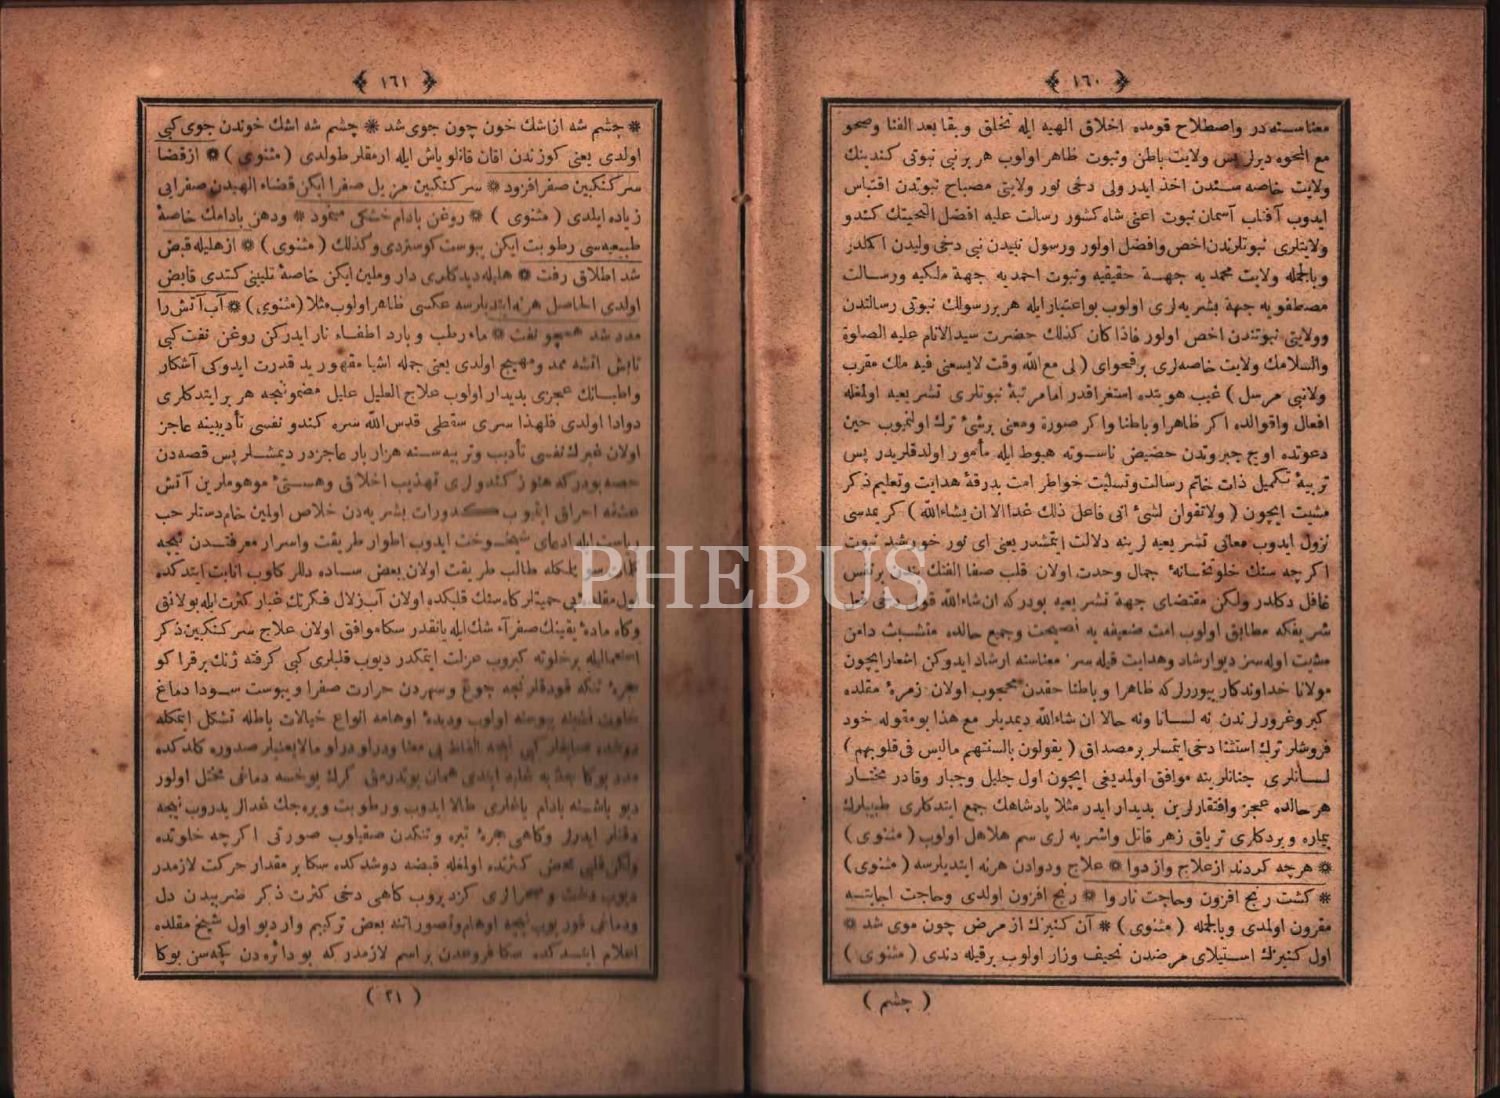 ﴿ ١٦٠ ﴾
معناسنه در واصطلاح قومده اخلاق الهیه ایله تخلق و بقا بعد الفنا وصحو
مع المحوه دیرلر پس ولایت باطن ونبوت ظاهر اولوب هر برنبی نبوتی کندینك
ولایت خاصه سندن اخذ ایدر ولی دخی نور ولایتی مصباح نبوتدن اقتباس
ایدوب آفتاب آسمان نبوت اعنی شاه کشور رسالت علیه افضل التحیتك کندو
ولایتلری نبوتلرندن اخص وافضل اولور ورسول نبیدن نبی دخی ولیدن اکملدر
وبالجمله ولایت محمدیه جهة حقیقیه ونبوت احمدیه جهة ملکیه ورسالت
مصطفویه جهة بشریه لری اولوب بواعتبار ایله هر بررسولك نبوتی رسالتندن
وولایتی نبوتندن اخص اولور فاذا کان کذلك حضرت سیدالانام علیه الصلوة
والسلامك ولایت خاصه لری برفحوای ( لی مع الله وقت لایسعنی فیه ملك مقرب
ولانبی مرسل ) غیب هویتده استغراقدر اما مرتبهٔ نبوتلری تشریعیه اولمغله
افعال واقوالده اکر ظاهرا وباطنا واکر صورة ومعنی برشیٔ ترك اولنمیوب حین
دعوتده اوج جبروتدن حضیض ناسوته هبوط ایله مأمور اولدقلریدر پس
تربیهٔ تکمیل ذات خاتم رسالت وتسلیت خواطر امت بدرقهٔ هدایت وتعلیم ذکر
مشیت ایچون ( ولاتقولن لشیٔ انی فاعل ذلك غدا الا ان یشاءالله ) کریمه سی
نزول ایدوب معانی تشریعیه لرینه دلالت ایتمشدر یعنی ای نور خورشید نبوت
اکرچه سنك خلوتخانهٔ جمال وحدت اولان قلب صفا الفتك بندن برنفس
غافل دکلدر ولکن مقتضای جهة تشریعیه بودرکه ان شاءالله قول دخی فعل
شریفکه مطابق اولوب امت ضعیفه یه نصیحت وجمیع حالده متشبث دامن
مشیت اوله سز دیو ارشاد وهدایت قیله سز معناسنه ارشاد ایدوکن اشعار ایچون
مولانا خداوندکار بیوررلرکه ظاهرا وباطنا حقدن محجوب اولان زمرهٔ مقلده
کبر وغرورلرندن نه لسانا ونه حالا ان شاءالله دیمدیلر مع هذا بومقوله خود
فروشلر ترك استثنا دخی ایتمسلر برمصداق ( یقولون بالسنتهم مالیس فی قلوبهم )
لسانلری جنانلرینه موافق اولمدیغی ایچون اول جلیل وجبار وقادر مختار
هر حالده عجز وافتقارلرین بدیدار ایدر مثلا پادشاهك جمع ایتدکاری طبیبلرك
بیماره ویردکاری تریاق زهر قاتل واشربه لری سم هلاهل اولوب ( مثنوی )
❊ هرچه کردند از علاج واز دوا ❊ علاج ودوادن هرنه ایتدیلرسه ( مثنوی )
❊ کشت رنج افزون وحاجت ناروا ❊ رنج افزون اولدی وحاجت اجابتسه
مقرون اولمدی وبالجمله ( مثنوی ) ❊ آن کنیزك از مرض چون موی شد ❊
اول کنیزك استیلای مرضدن نحیف وزار اولوب برقیله دندی ( مثنوی )
( چشم )
﴿ ١٦١ ﴾
❊ چشم شه از اشك خون چون جوی شد ❊ چشم شه اشك خوندن جوی کبی
اولدی یعنی کوزندن اقان قانلو یاش ایله ارمقلر طولدی ( مثنوی ) ❊ از قضا
سرکنکبین صفرا فزود ❊ سرکنکبین مزیل صفرا ایکن قضاء الهیدن صفرایی
زیاده ایلدی ( مثنوی ) ❊ روغن بادام خشکی مینمود ❊ ودهن بادامك خاصهٔ
طبیعیه سی رطوبت ایکن یبوست کوستردی وکذلك ( مثنوی ) ❊ از هلیله قبض
شد اطلاق رفت ❊ هلیله دیدکلری دار وملین ایکن خاصهٔ تلیینی کتدی قابض
اولدی الحاصل هرنه ایتدیلرسه عکسی ظاهر اولوب مثلا ( مثنوی ) ❊ آب آتش را
مدد شد همچو نفت ❊ ماء رطب و بارد اطفاء نار ایدرکن روغن نفت کبی
تابش آتشه ممد ومهیج اولدی یعنی جمله اشیا مقهور ید قدرت ایدوکی آشکار
واطبانك عجزی بدیدار اولوب علاج العلیل علیل مضمونجه هر بر ایتدکاری
دوادا اولدی فلهذا سری سقطی قدس الله سره کندو نفسی تأدیبینه عاجز
اولان غیرك نفسی تأدیب وتربیه سنه هزار بار عاجزدر دیمشلر پس قصه دن
حصه بودرکه هنوز کندولری تهذیب اخلاق وهستیٔ موهوملرین آتش
عشقه احراق ایتمیوب کدورات بشریه دن خلاص اولمین خام دستلر حب
ریاست ایله ادعای شیخوخت ایدوب اطوار طریقت واسرار معرفتدن نیجه
طالب طریقت اولان بعض ساده دللر کلوب انابت ایتدکده
اول قلبکده اولان آب زلال فکرتك غبار کثرت ایله بولانق
وکاه مادهٔ یقینك صفرآء شك ایله یانقدر سکا موافق اولان علاج سرکنکبین ذکر
استعمالیله برخلوته کیروب عزلت ایتمکدر دیوب قلبلری کبی کرفته ژنك برقرا کو
حجرهٔ تنکه قودقلرنجه جوع وسهردن حرارت صفرا ویبوست سودا دماغ
اولوب ودیدهٔ اوهامه انواع خیالات باطله تشکل ایتمکله
کبی نیجه الفاظ بی معنا ودراو دراو مالایعنیلر صدوره کلدکده
ایتدی همان بوندرمق کرك یوخسه دماغی مختل اولور
دیو باشنه بادام یاغلری طلا ایدوب ورطوبت ویره جك غدالر یدروب نیجه
دفنلر ایدرلر وکاهی حجرهٔ تیره وتنکدن صقیلوب صورتی اکرچه خلوتده
ولکن قلبی محض کثرتده اولمغله قبضه دوشدکده سکا بر مقدار حرکت لازمدر
دیوب دشت وصحرالری کزدیروب کاهی دخی کثرت ذکر ضربیدن دل
ودماغی قوریوب نیجه اوهام وتصوراتنه بعض ترکیم وار دیو اول شیخ مقلده
اعلام ایتدکده سکا فروعدن براسم لازمدرکه بودائره دن کچه سن یوکا
( ٢١ )
PHEBUS